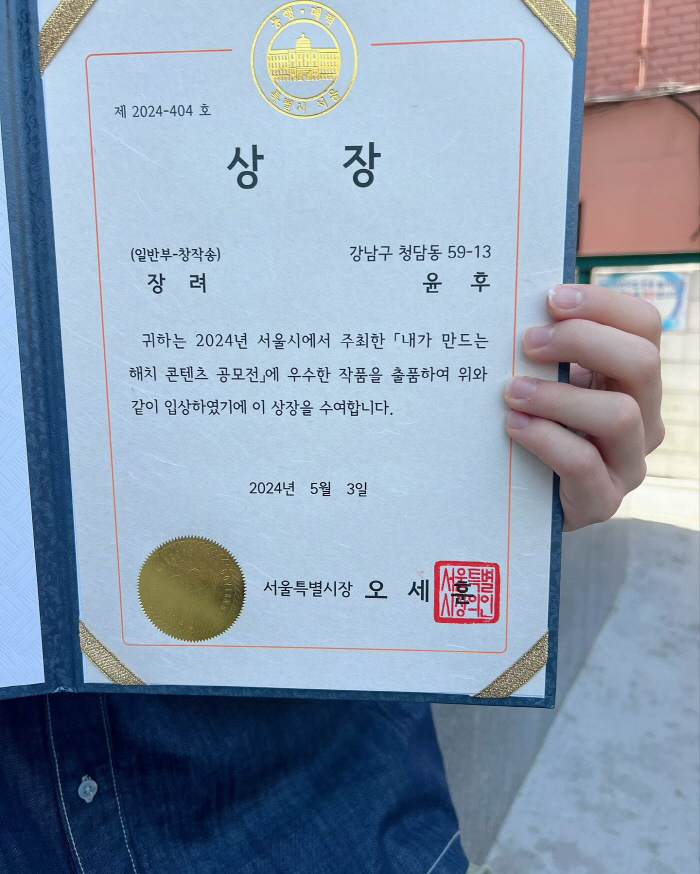 동행·매력
특별시 서울
제 2024-404 호
상 장
(일반부-창작송) 강남구 청담동 59-13
장 려 윤 후
귀하는 2024년 서울시에서 주최한 「내가 만드는
해치 콘텐츠 공모전」에 우수한 작품을 출품하여 위와
같이 입상하였기에 이 상장을 수여합니다.
2024년 5월 3일
서울특별시장 오 세 훈
서울특별
시장의인